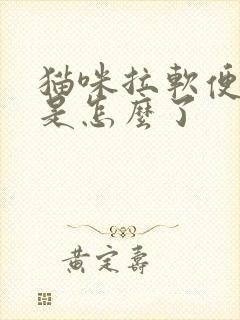 猫咪拉軟便
是怎麼了
黃定壽